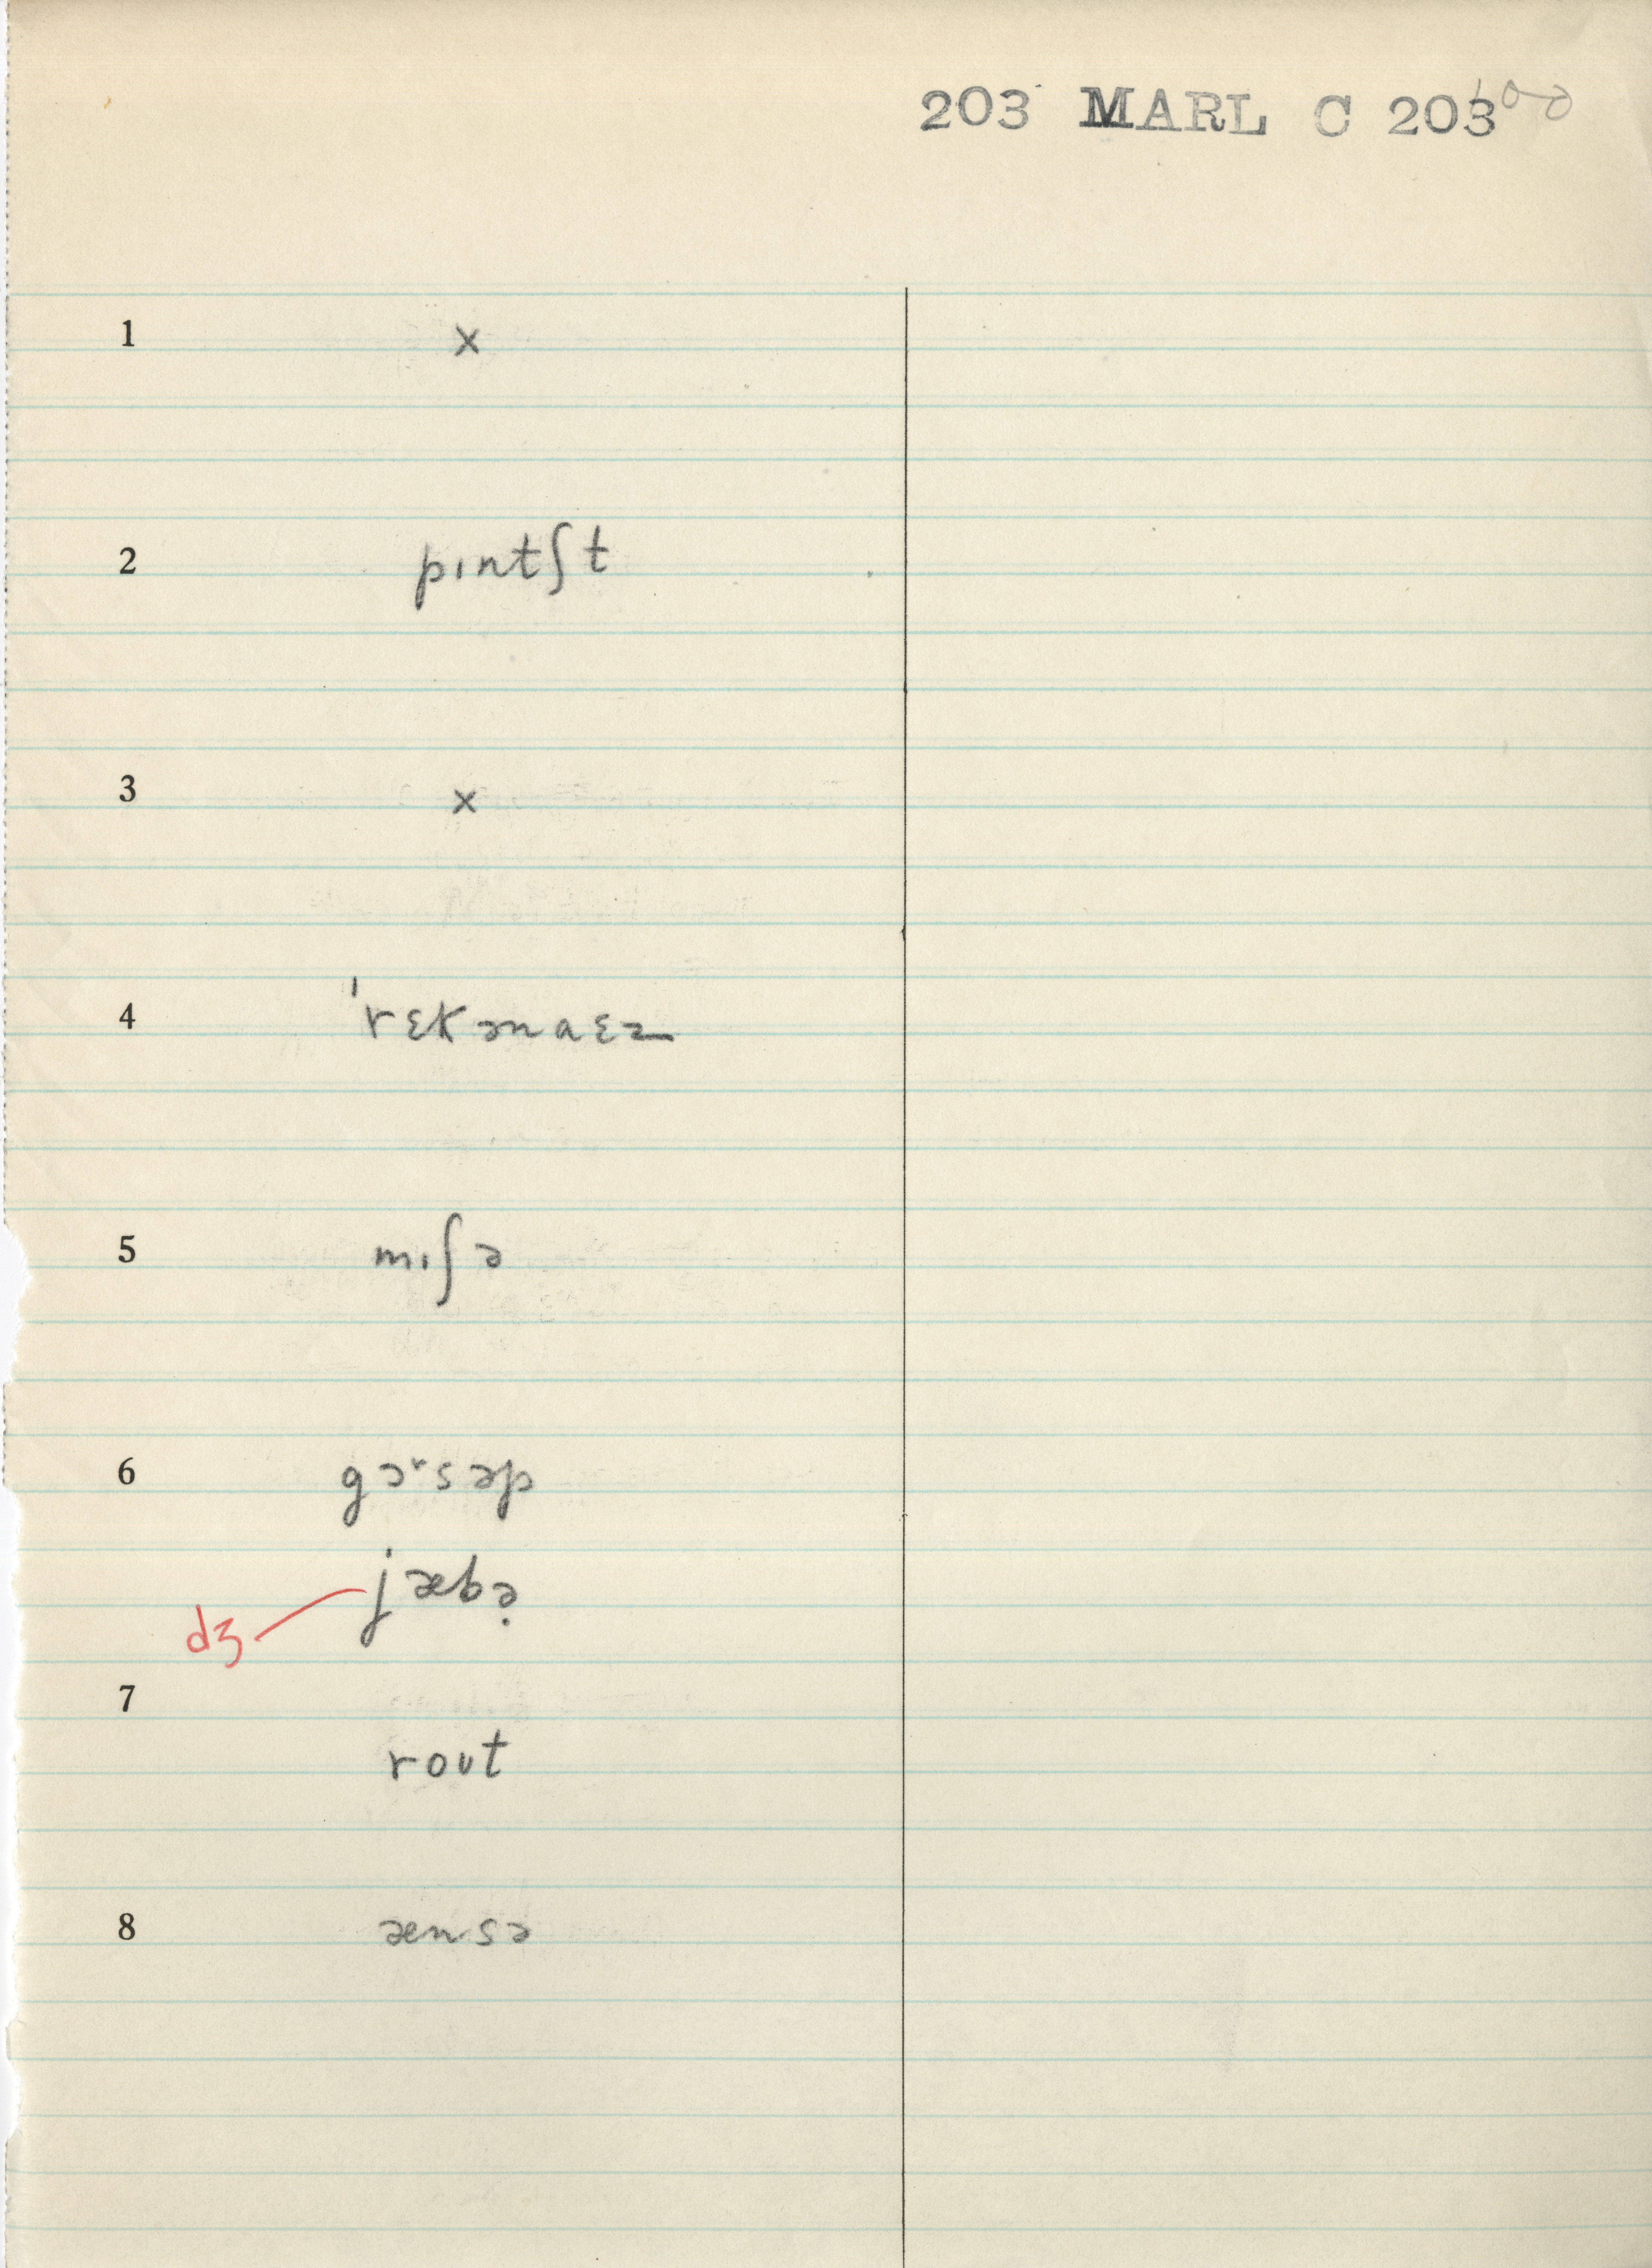 203 MARL C 203
1 x
2 pɪntʃt
3 x
4 ˈrɛkənaɛz
5 mɪʃə
6 gɚsəp
jæbə̣
dʒ
7
rout
8 ænsə